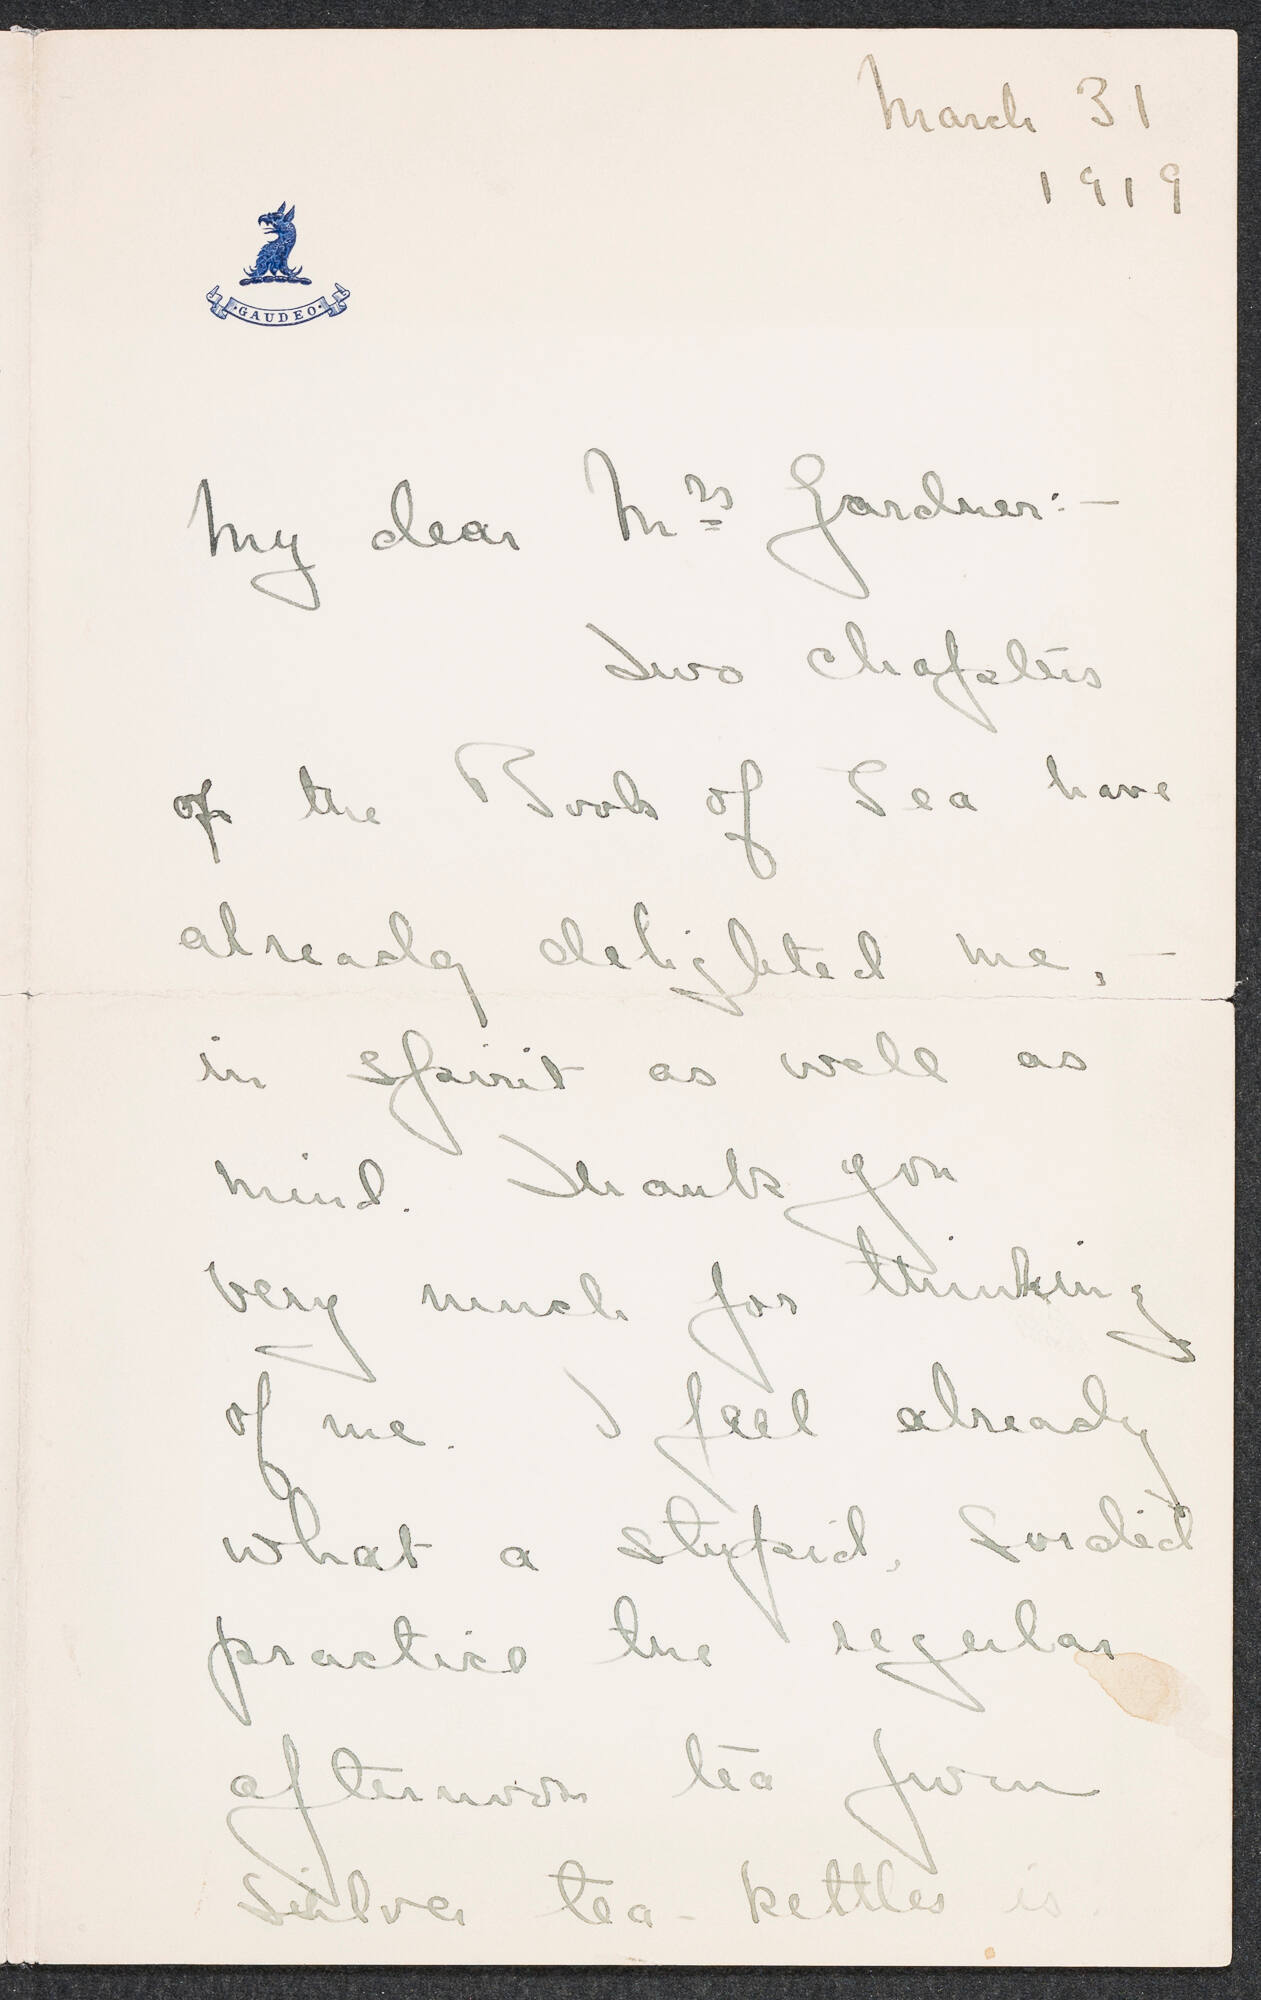 March 31
1919
·GAUDEO·
My dear Mrs Gardner:—
Two chapters
of the Book of Tea have
already delighted me, —
in spirit as well as
mind. Thank you
very much for thinking
of me. I feel already
what a stupid, sordid
practice the regular
afternoon tea from
silver tea-kettles is.